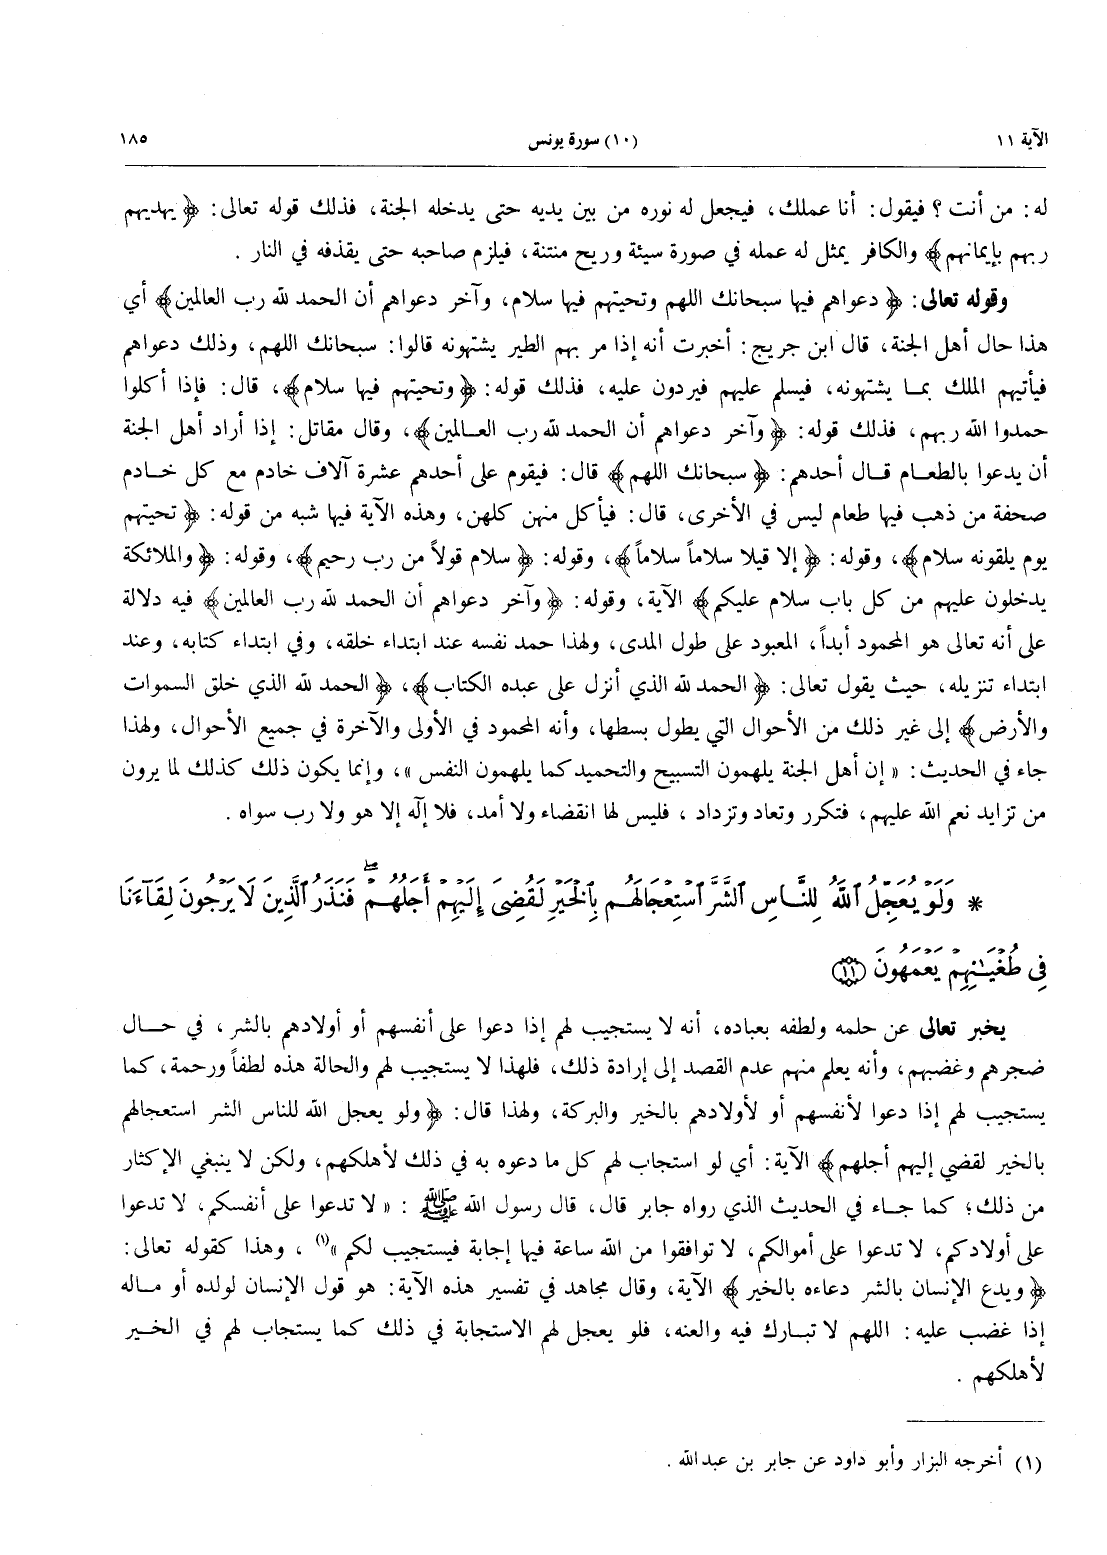 الآية ١١ (١٠) سورة يونس ١٨٥
له: من أنت ؟ فيقول: أنا عملك، فيجعل له نوره من بين يديه حتى يدخله الجنة، فذلك قوله تعالى: ﴿ يهديهم
ربهم بإيمانهم﴾ والكافر يمثل له عمله في صورة سيئة وريح منتنة، فيلزم صاحبه حتى يقذفه في النار .
وقوله تعالى: ﴿ دعواهم فيها سبحانك اللهم وتحيتهم فيها سلام، وآخر دعواهم أن الحمد لله رب العالمين﴾ أي
هذا حال أهل الجنة، قال ابن جريج: أخبرت أنه إذا مر بهم الطير يشتهونه قالوا: سبحانك اللهم، وذلك دعواهم
فيأتيهم الملك بما يشتهونه، فيسلم عليهم فيردون عليه، فذلك قوله: ﴿وتحيتهم فيها سلام﴾، قال: فإذا أكلوا
حمدوا الله ربهم، فذلك قوله: ﴿ وآخر دعواهم أن الحمد لله رب العالمين﴾، وقال مقاتل: إذا أراد أهل الجنة
أن يدعوا بالطعام قال أحدهم: ﴿ سبحانك اللهم﴾ قال: فيقوم على أحدهم عشرة آلاف خادم مع كل خادم
صحفة من ذهب فيها طعام ليس في الأخرى، قال: فيأكل منهن كلهن، وهذه الآية فيها شبه من قوله: ﴿ تحيتهم
يوم يلقونه سلام﴾، وقوله: ﴿ إلا قيلا سلاماً سلاماً﴾، وقوله: ﴿ سلام قولاً من رب رحيم﴾، وقوله: ﴿ والملائكة
يدخلون عليهم من كل باب سلام عليكم﴾ الآية، وقوله: ﴿ وآخر دعواهم أن الحمد لله رب العالمين﴾ فيه دلالة
على أنه تعالى هو المحمود أبداً، المعبود على طول المدى، ولهذا حمد نفسه عند ابتداء خلقه، وفي ابتداء كتابه، وعند
ابتداء تنزيله، حيث يقول تعالى: ﴿ الحمد لله الذي أنزل على عبده الكتاب﴾، ﴿ الحمد لله الذي خلق السموات
والأرض﴾ إلى غير ذلك من الأحوال التي يطول بسطها، وأنه المحمود في الأولى والآخرة في جميع الأحوال، ولهذا
جاء في الحديث: « إن أهل الجنة يلهمون التسبيح والتحميد كما يلهمون النفس »، وإنما يكون ذلك كذلك لما يرون
من تزايد نعم الله عليهم، فتكرر وتعاد وتزداد ، فليس لها انقضاء ولا أمد، فلا إلٓه إلا هو ولا رب سواه .
* وَلَوْ يُعَجِّلُ ٱللَّهُ لِلنَّاسِ ٱلشَّرَّ ٱسْتِعْجَالَهُم بِٱلْخَيْرِ لَقُضِيَ إِلَيْهِمْ أَجَلُهُمْ ۖ فَنَذَرُ ٱلَّذِينَ لَا يَرْجُونَ لِقَآءَنَا
فِى طُغْيَـٰنِهِمْ يَعْمَهُونَ ⟨١١⟩
يخبر تعالى عن حلمه ولطفه بعباده، أنه لا يستجيب لهم إذا دعوا على أنفسهم أو أولادهم بالشر ، في حال
ضجرهم وغضبهم، وأنه يعلم منهم عدم القصد إلى إرادة ذلك، فلهذا لا يستجيب لهم والحالة هذه لطفاً ورحمة، كما
يستجيب لهم إذا دعوا لأنفسهم أو لأولادهم بالخير والبركة، ولهذا قال: ﴿ولو يعجل الله للناس الشر استعجالهم
بالخير لقضي إليهم أجلهم﴾ الآية: أي لو استجاب لهم كل ما دعوه به في ذلك لأهلكهم، ولكن لا ينبغي الإكثار
من ذلك؛ كما جاء في الحديث الذي رواه جابر قال، قال رسول الله ﷺ : « لا تدعوا على أنفسكم، لا تدعوا
على أولادكم، لا تدعوا على أموالكم، لا توافقوا من الله ساعة فيها إجابة فيستجيب لكم »(١) ، وهذا كقوله تعالى:
﴿ ويدع الإنسان بالشر دعاءه بالخير ﴾ الآية، وقال مجاهد في تفسير هذه الآية: هو قول الإنسان لولده أو ماله
إذا غضب عليه: اللهم لا تبارك فيه والعنه، فلو يعجل لهم الاستجابة في ذلك كما يستجاب لهم في الخير
لأهلكهم .
(١) أخرجه البزار وأبو داود عن جابر بن عبد الله .